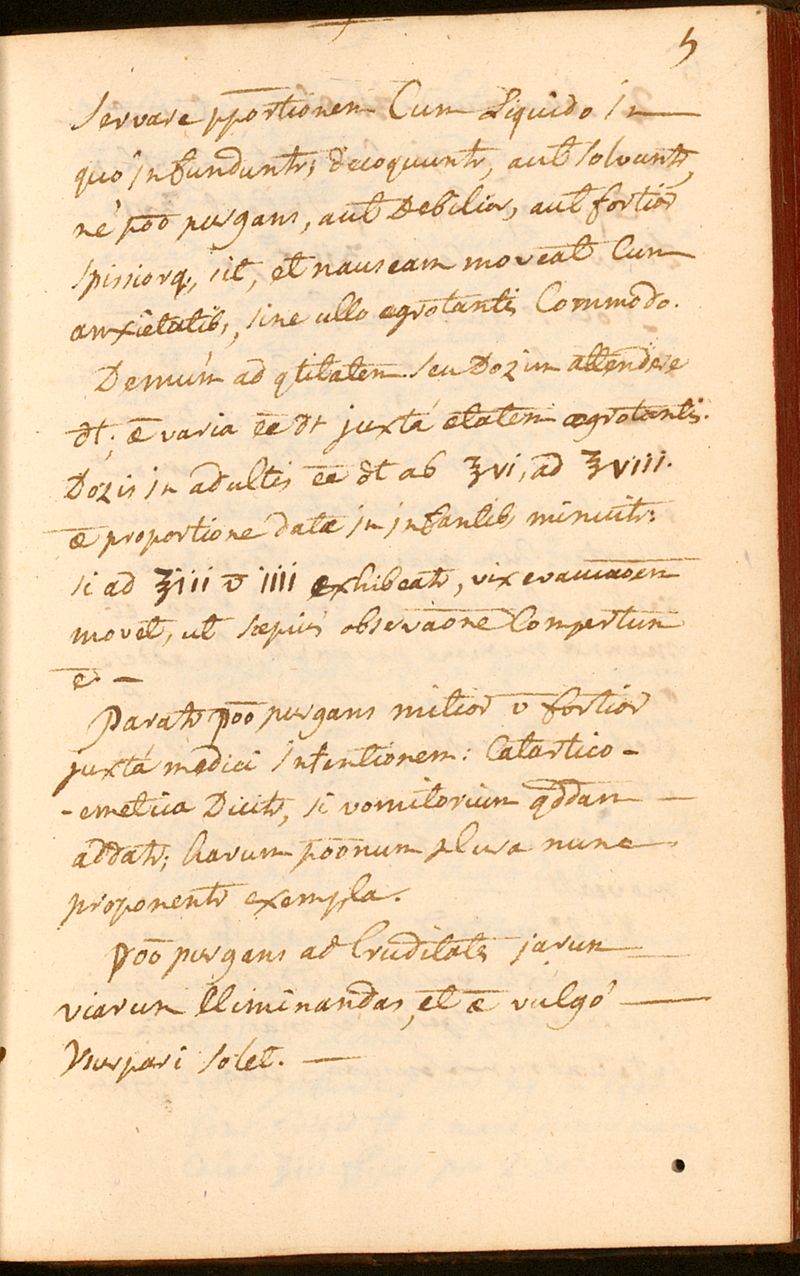 5
servare pportionem Cum Liquido in
quo infunduntr, decoquuntr, aut solvuntr,
né poõ purgans, aut Debilior, aut fortior
spissiorq, sit, et nauseam moveat Cum
anxietatib, sine ullo ægrotantis Commodo.
Demúm ad qtitatem seu Dozim attendere
dt; æ varia eē dt juxtá etatem ægrotantis.
Dozis in adultis eē dt ab ℥vi, ad ℥viii.
æ proportione data in infantib minuitr:
si ad ℥iii v̄ iiii exhibeatr, vix evacuaōem
movet, ut sæpius observaōne Compertum
ē. —
Paratr poõ purgans mitior v̄ fortior
juxtá medici intentionem: Catartico-
-emetica Dicitr, si vomitorium qddam —
addatr; harum poõnum plura nunc
proponentr exempla.
Poõ purgans ad Cruditates 
viarum Eliminandas, et æ vúlgó —
Usurpari solet. —